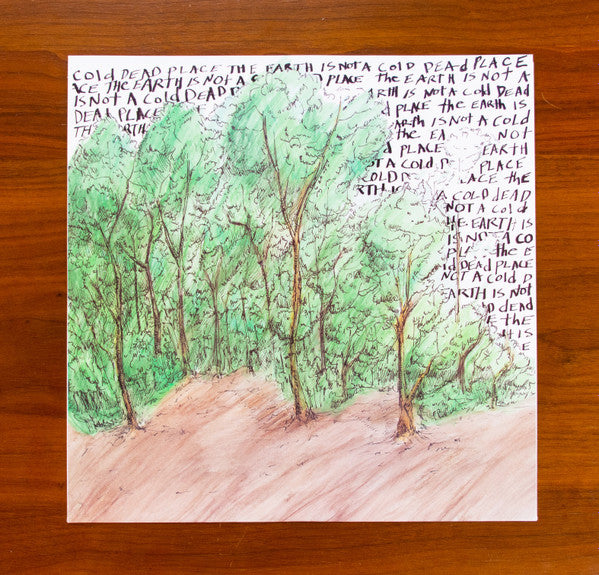 COLD DEAD PLACE THE EARTH IS NOT A COLD DEAD PLACE
ACE THE EARTH IS NOT A COLD DEAD PLACE THE EARTH IS NOT A
IS NOT A COLD DEAD ARTH IS NOT A COLD DEAD
DEAD PLACE D PLACE THE EARTH IS
THE EARTH ARTH IS NOT A COLD
THE EA NOT
OT A COLD PLACE
COLD D EARTH
ACE THE
RTH
A COLD DEAD
NOT A COLD
HE EARTH IS
IS NOT A CO
THE E
LD DEAD PLACE
NOT A COLD D
EARTH IS NOT
D DEAD
E THE
H IS
E